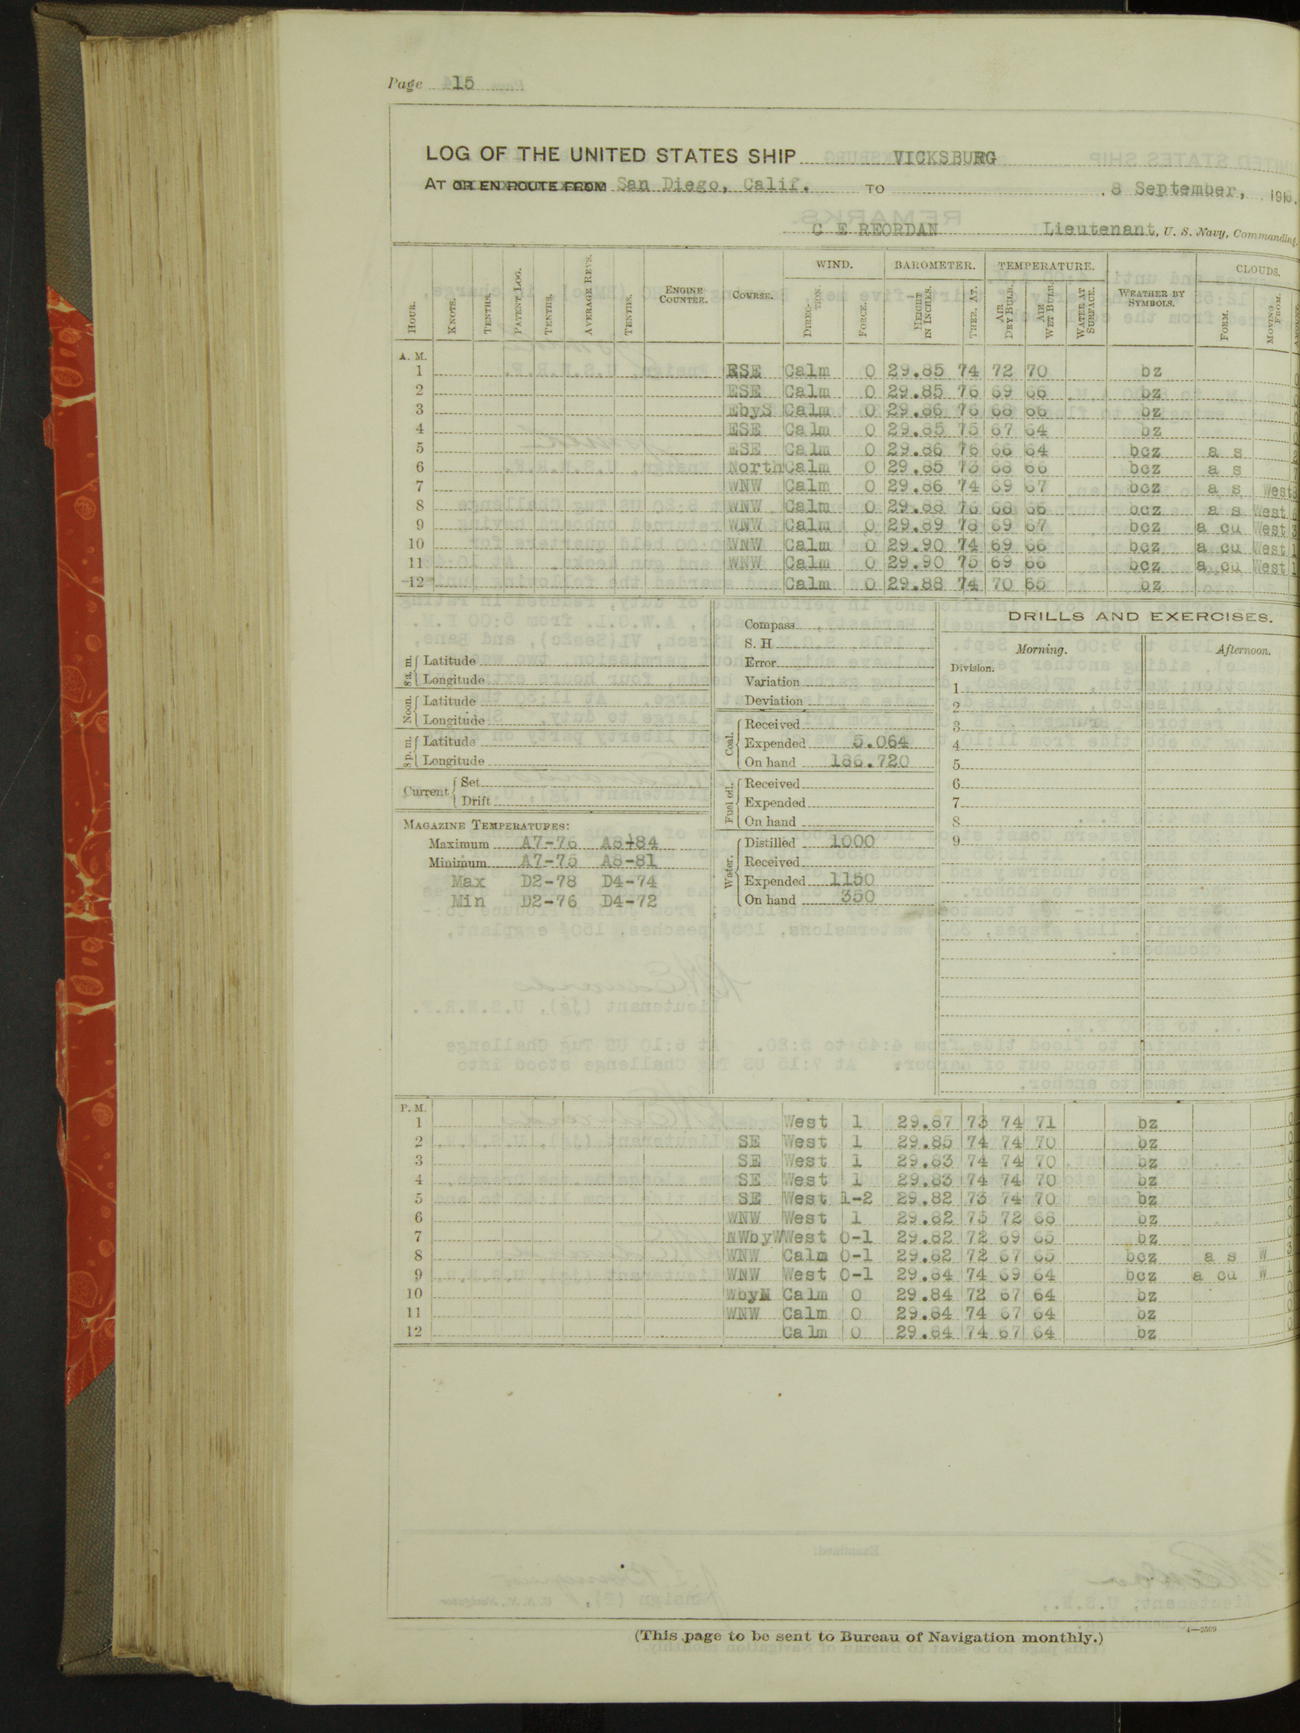 Page 15
LOG OF THE UNITED STATES SHIP VICKSBURG
AT OR EN ROUTE FROM San Diego, Calif. TO 8 September, 191
C E REORDAN Lieutenant, U. S. Navy, Commanding.
WIND. BAROMETER. TEMPERATURE. CLOUDS.
HOUR. KNOTS. TENTHS. PATENT LOG. TENTHS. AVERAGE REVS. TENTHS. ENGINE COUNTER. COURSE. DIREC-TION. FORCE. HEIGHT IN INCHES. THER. AT. AIR DRY BULB. AIR WET BULB. WATER AT SURFACE. WEATHER BY SYMBOLS. FORM. MOVING FROM.
A. M.
1 ESE Calm 0 29.85 74 72 70 bz
2 ESE Calm 0 29.85 76 69 66 bz
3 EbyS Calm 0 29.86 76 68 66 bz
4 ESE Calm 0 29.85 75 67 64 bz
5 ESE Calm 0 29.86 76 66 64 bcz a s
6 North Calm 0 29.85 73 68 66 bcz a s
7 WNW Calm 0 29.86 74 69 67 bcz a s West
8 WNW Calm 0 29.88 76 68 66 bcz a s West
9 WNW Calm 0 29.89 78 69 67 bcz a cu West
10 WNW Calm 0 29.90 74 69 66 bcz a cu West
11 WNW Calm 0 29.90 75 69 66 bcz a cu West
12 Calm 0 29.88 74 70 65 bz
8 a. m. Latitude
Longitude
Noon. Latitude
Longitude
8 p. m. Latitude
Longitude
Current Set
Drift
MAGAZINE TEMPERATURES:
Maximum A7-76 A8-84
Minimum A7-75 A8-81
Max D2-78 D4-74
Min D2-76 D4-72
Compass
S. H
Error
Variation
Deviation
Coal. Received
Expended 5.064
On hand 186.720
Fuel oil. Received
Expended
On hand
Water. Distilled 1000
Received
Expended 1150
On hand 350
DRILLS AND EXERCISES.
Morning. Afternoon.
Division.
1
2
3
4
5
6
7
8
9
P. M.
1 West 1 29.87 73 74 71 bz
2 SE West 1 29.85 74 74 70 bz
3 SE West 1 29.83 74 74 70 bz
4 SE West 1 29.83 74 74 70 bz
5 SE West 1-2 29.82 73 74 70 bz
6 WNW West 1 29.82 75 72 68 bz
7 NWbyW West 0-1 29.82 72 69 65 bz
8 WNW Calm 0-1 29.82 72 67 65 bcz a s W
9 WNW West 0-1 29.84 74 69 64 bcz a cu W
10 WbyN Calm 0 29.84 72 67 64 bz
11 WNW Calm 0 29.84 74 67 64 bz
12 Calm 0 29.84 74 67 64 bz
(This page to be sent to Bureau of Navigation monthly.)